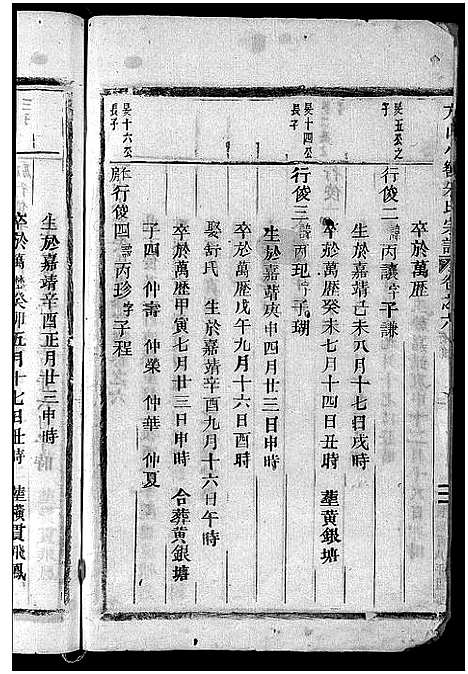 宋氏宗譜 卷之六
卒於萬歷
昊五公之子
行俊二 諱丙讓 字子謙
生於嘉靖己未八月十七日戌時
卒於萬歷癸未七月十四日丑時 塟黃銀塘
昊十四公長子
行俊三 諱丙玘 字子瑚
生於嘉靖庚申四月廿三日申時
卒於萬歷戊午九月十六日酉時
娶舒氏 生於嘉靖辛酉九月十六日午時
卒於萬歷甲寅七月廿三日申時 合葬黃銀塘
子四 仲壽 仲榮 仲華 仲夏
昊十六公長子
行俊四 諱丙珍 字子程
生於嘉靖辛酉正月廿三申時
卒於萬歷癸卯五月十七日丑時 塟橫貫飛鳳